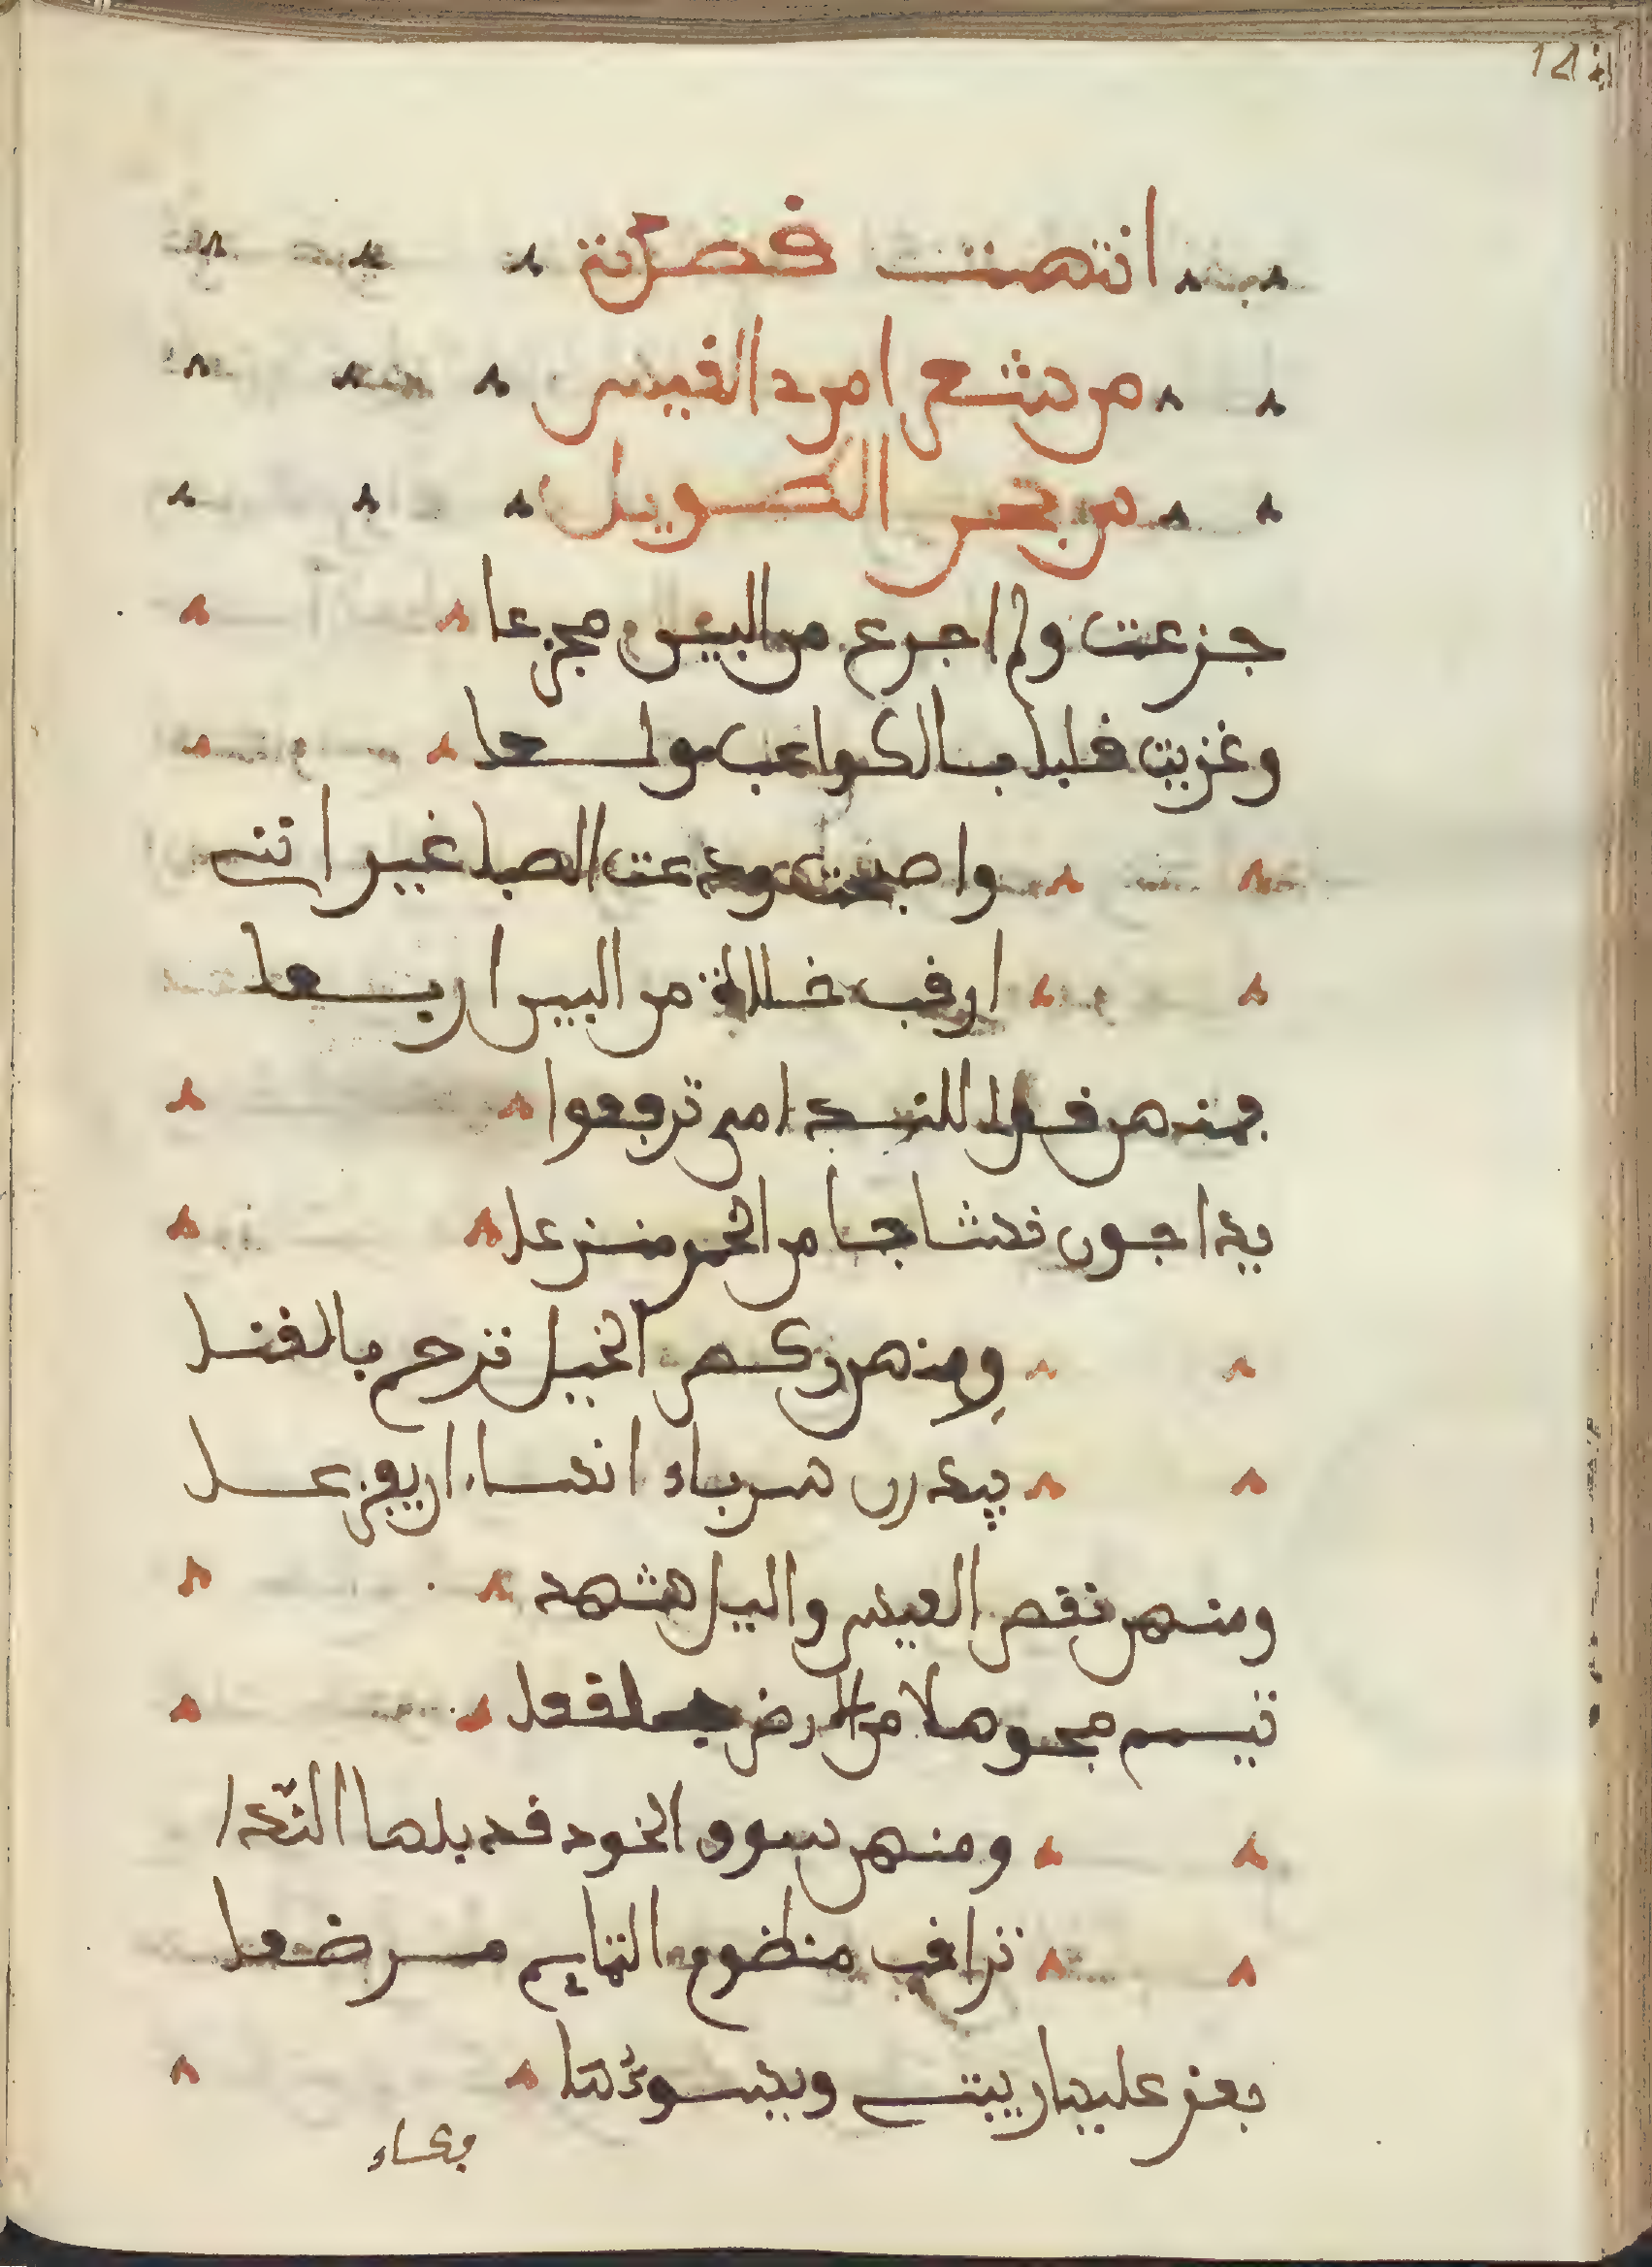 انتهت قصته
من شعر امرء القيس
من بحر الطويل
جزعت ولم اجزع من البين مجزعا
وعزيت قلبا بالكواعب مولعا
واصبحت ودعت الصبا غير انني
اراقب خلات من البيض اربعا
فمنهن قولي للندمى ترفعوا
يداجون نشاجا من الخمر منزعا
ومنهن ركض الخيل ترجم بالقنا
يبادرن سربا انسا ان يفزعا
ومنهن نص العيس واليل
تيمم مجهولا من الارض بلقعا
ومنهن سوف الخود قد بلها الندا
تراقب منظوم التمايم مرضعا
يعز عليها ريبتي ويسوءها
بكاء